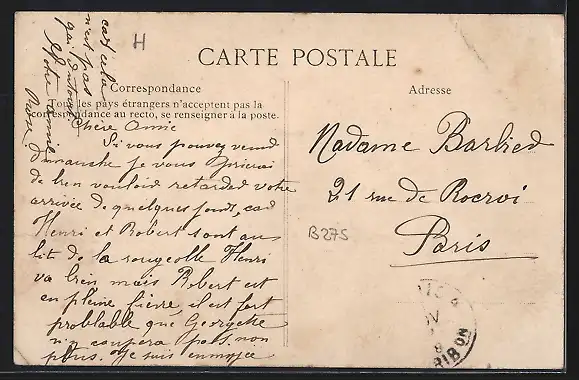 H
CARTE POSTALE
Correspondance
Tous les pays étrangers n'acceptent pas la
correspondance au recto, se renseigner à la poste.
Adresse
Chère Amie
Si vous pouvez venir
dimanche je vous prierai
de bien vouloir retarder votre
arrivée de quelques jours, car
Henri et Robert sont au
lit de la rougeolle Henri
va bien mais Robert est
en pleine fièvre il est fort
problable que Georgette
n'y coupera pas, non
plus. Je suis ennuyée
car cela
n'est pas
gai
Votre amie
Madame Barbied
21 rue de Rocroi
Paris
B275